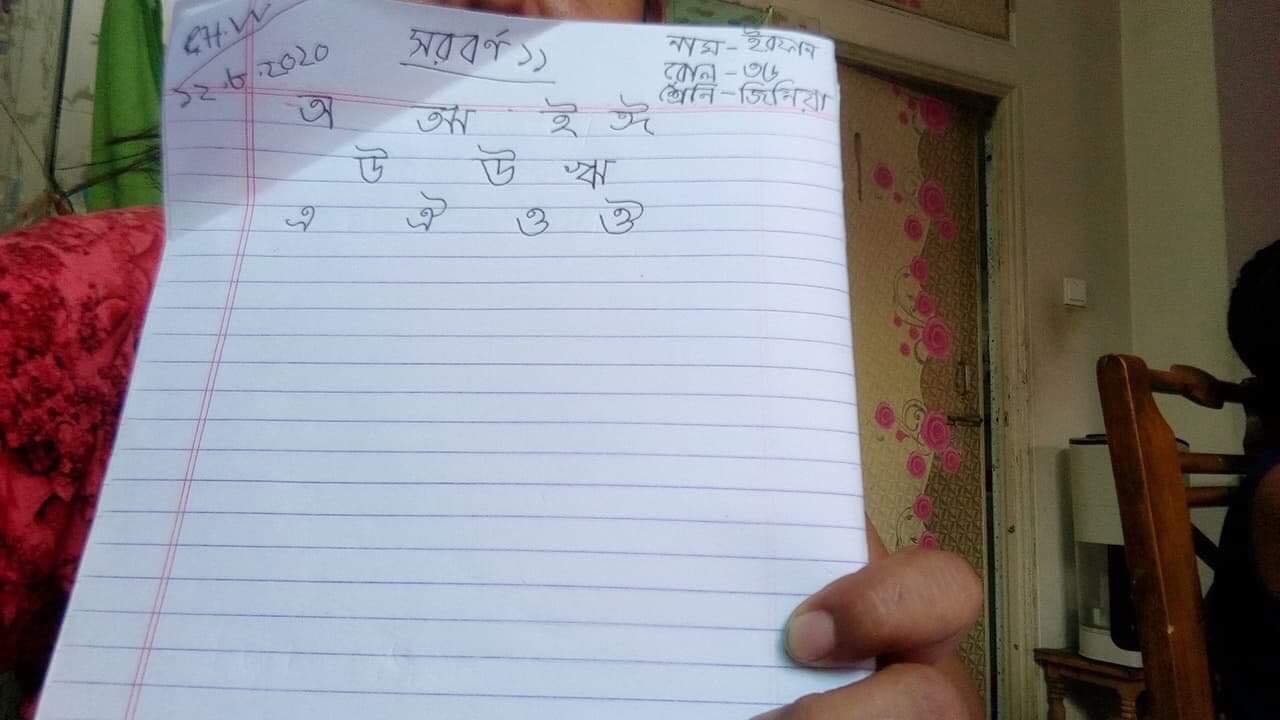 C.H.W
১২.৮.২০২০
সরবর্ণ ১১
নাম - ইরফান
রোল - ৩৬
শ্রেনি - জিনিয়া
অ আ ই ঈ
উ ঊ ঋ
এ ঐ ও ঔ